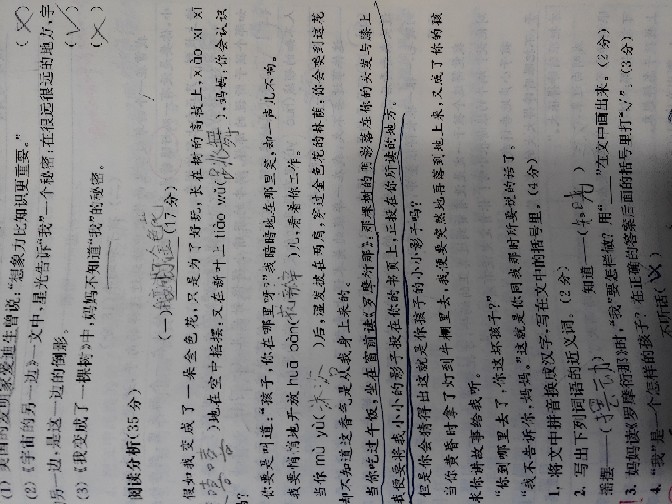 (1) 美国的发明家爱迪生曾说，“想象力比知识更重要。” (×)
(2) 《宇宙的另一边》一文中，星光告诉“我”一个秘密：在很远很远的地方，宇
另一边，是这一边的倒影。 (√)
(3) 《我变成了一棵树》中，妈妈不知道“我”的秘密。 (×)
阅读分析(35 分)
(一) (17 分)
假如我变成了一朵金色花，只是为了好玩，长在树的高枝上，xiào xī xī
( 嘻嘻 )地在空中摇摆，又在新叶上 tiào wǔ( 跳舞 )，妈妈，你会认识
?
你要是叫道：“孩子，你在哪里呀？”我暗暗地在那里笑，却一声儿不响。
我要悄悄地开放 huā bàn( 花瓣 )儿，看着你工作。
当你 mù yù( 沐浴 )后，湿发披在两肩，穿过金色花的林荫，你会嗅到这花
却不知道这香气是从我身上来的。
当你吃过午饭，坐在窗前读《罗摩衍那》，那棵树的阴影落在你的头发与膝上
我便要将我小小的影子投在你的书页上，正投在你所读的地方。
但是你会猜得出这就是你孩子的小小影子吗？
当你黄昏时拿了灯到牛棚里去，我便要突然地再落到地上来，又成了你的孩
求你讲故事给我听。
“你到哪里去了，你这坏孩子？”
“我不告诉你，妈妈。”这就是你同我那时所要说的话了。
1. 将文中拼音换成汉字，写在文中的括号里。(4 分)
2. 写出下列词语的近义词。(2 分)
摇摆——( 摆动 ) 知道——( 知晓 )
3. 妈妈读《罗摩衍那》时，“我”要怎样做？用“____”在文中画出来。(2 分)
4. “我”是一个怎样的孩子？在正确的答案后面的括号里打“√”。(3 分)